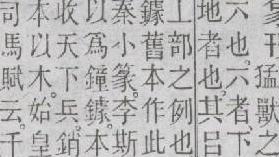 猛獸之
六也六者下
地者也其呂
上部之例也
鐻舊本作此
秦小篆李斯
以爲鐘鐻本
收天下兵銷
本以木始皇
司馬賦云千